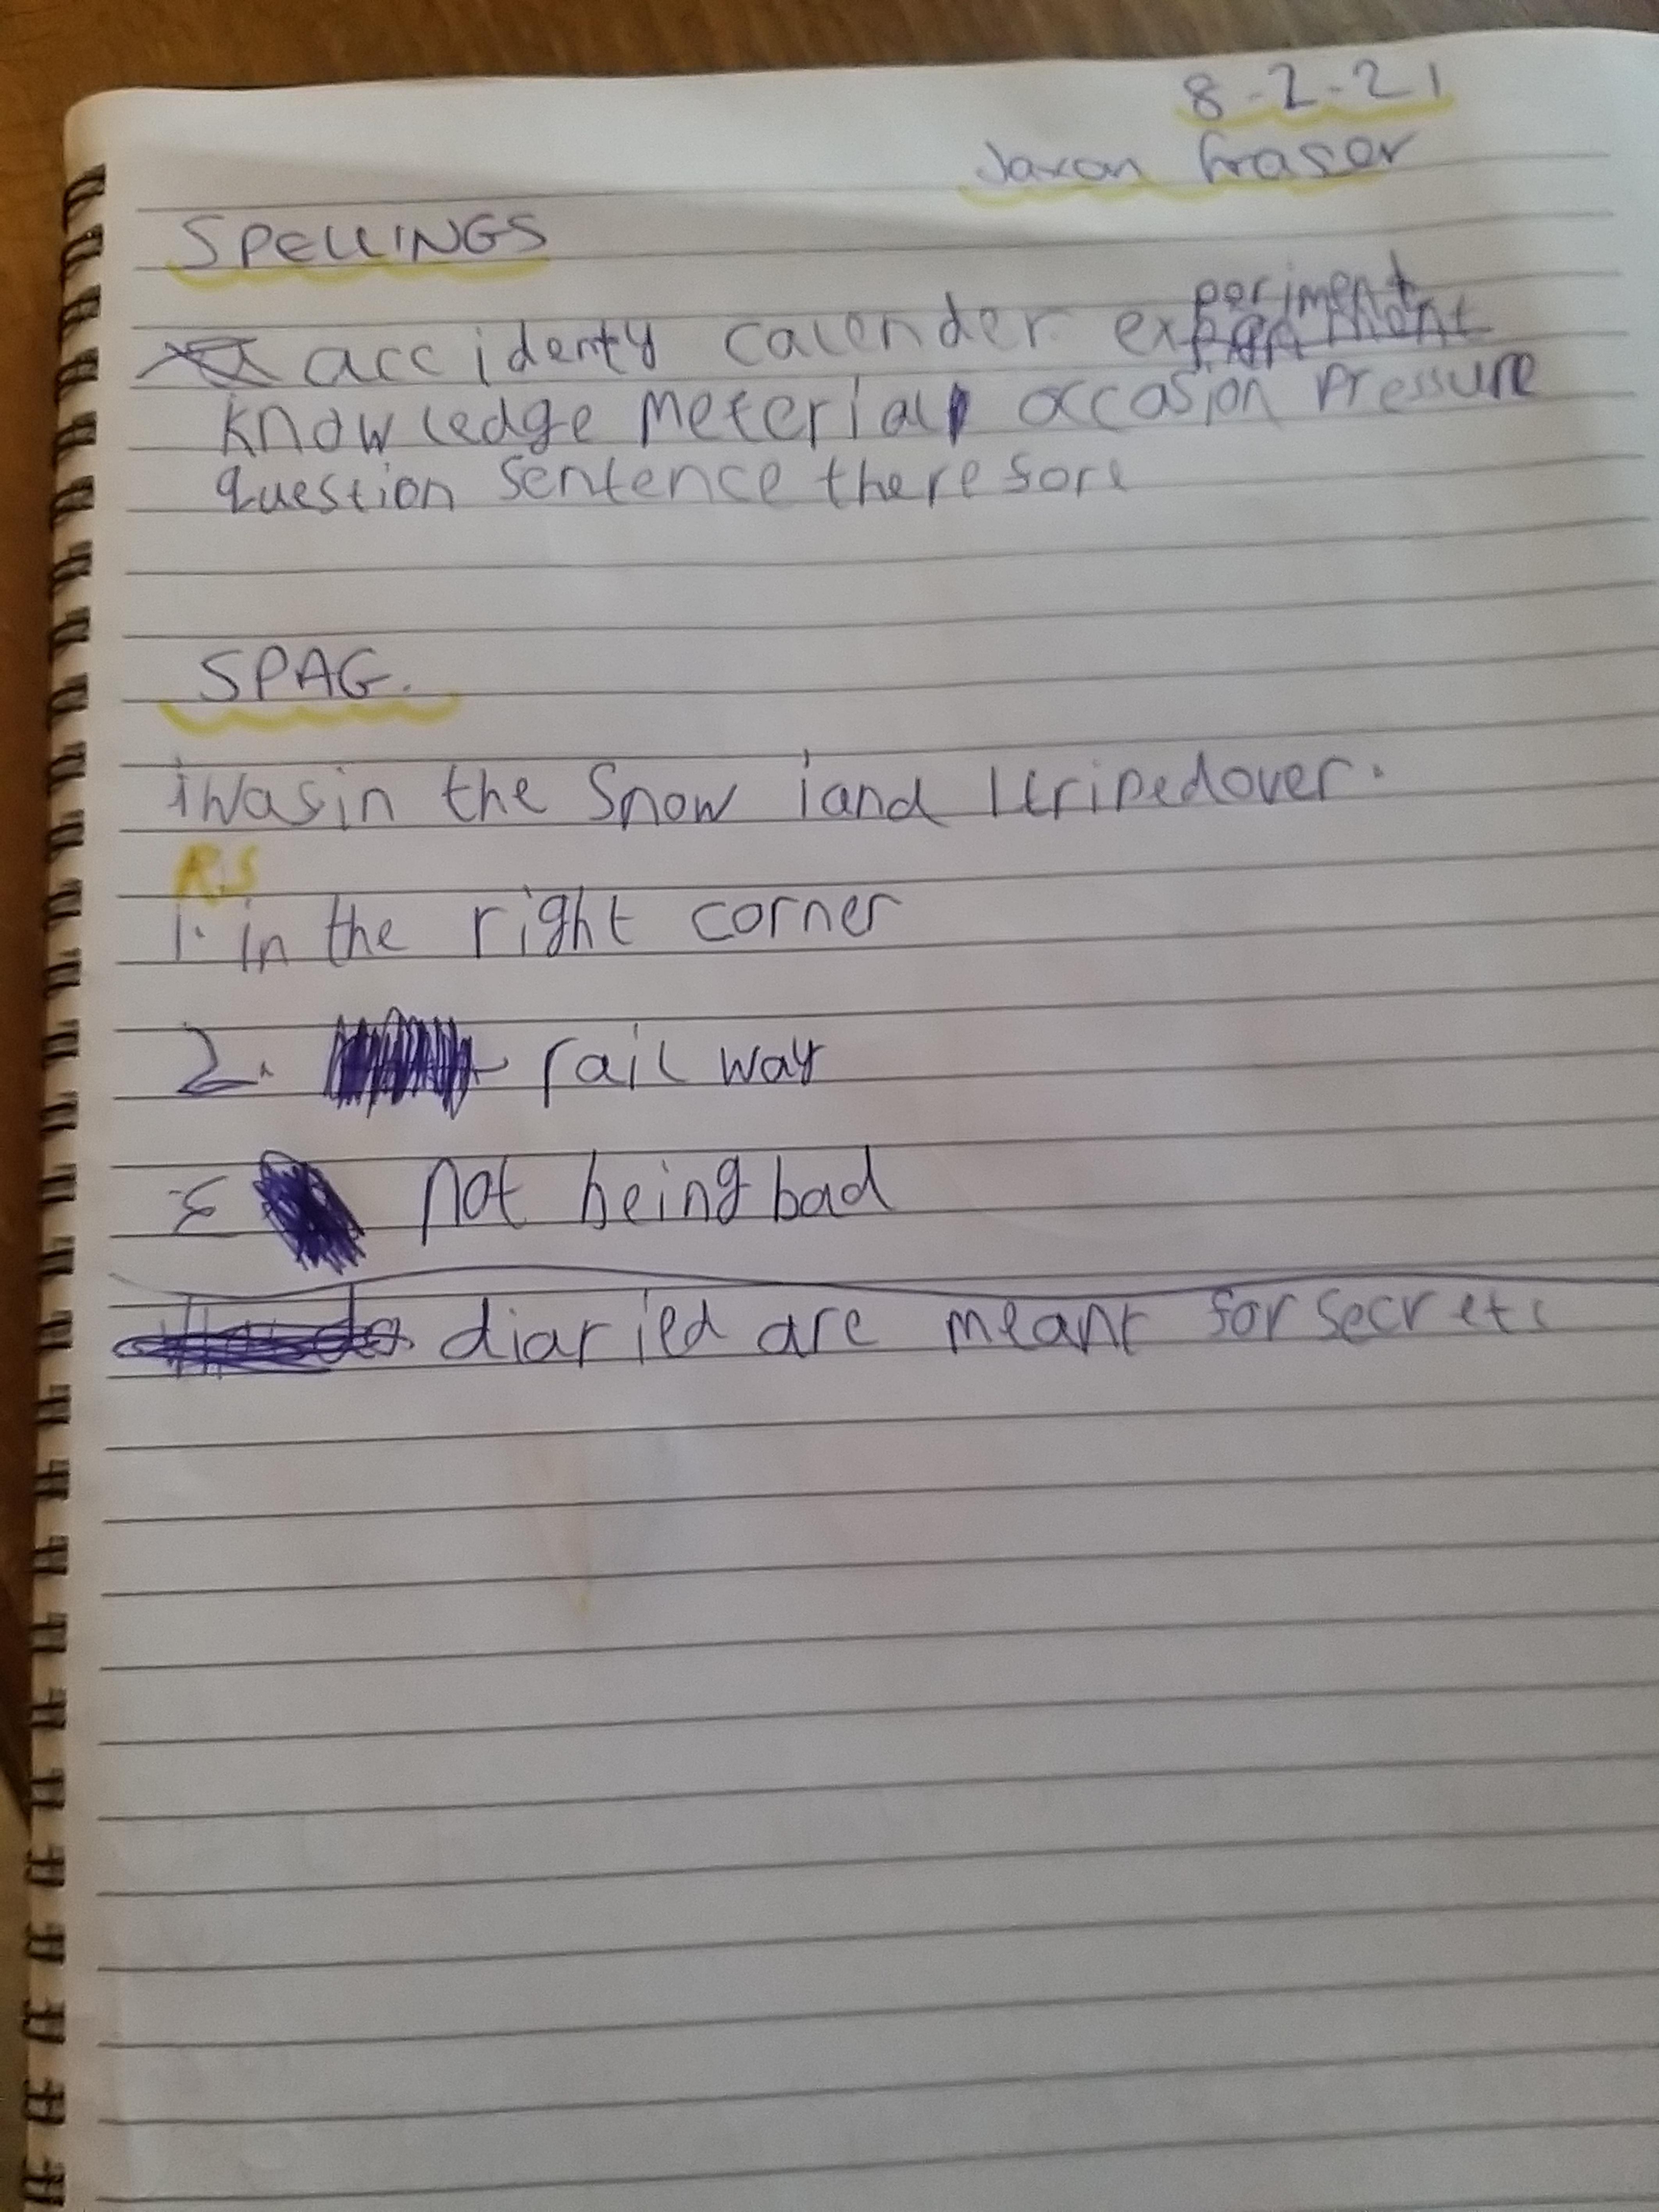 8-2-21
Jaxon fraser
SPELLINGS
accidenty calender experiment
knowledge meterial occasion pressure
question sentence therefore
SPAG.
i was in the snow i and I triped over.
R.S
1. in the right corner
2. rail way
not being bad
diaried are meant for secrets